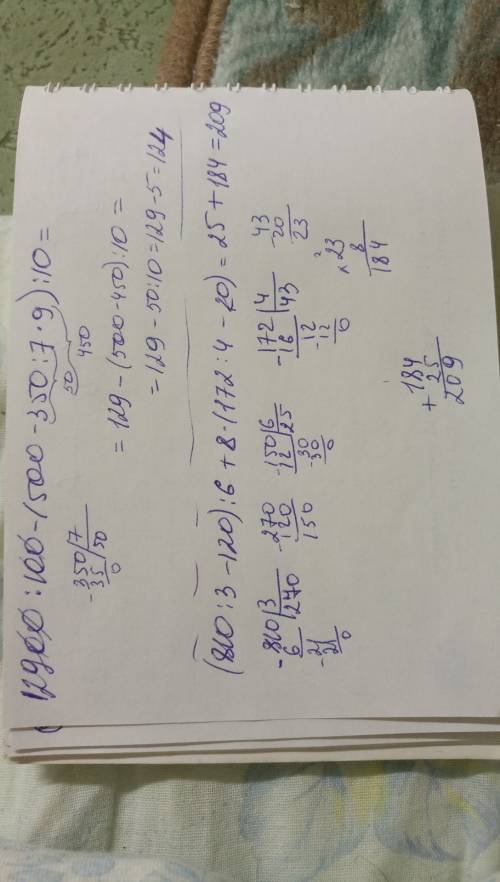 12900 : 100 - (500 - 350 : 7 · 9) : 10 =
50
450
350 | 7
- 35 | 50
0
= 129 - (500 - 450) : 10 =
= 129 - 50 : 10 = 129 - 5 = 124
(810 : 3 - 120) : 6 + 8 · (172 : 4 - 20) = 25 + 184 = 209
- 810 | 3
6 | 270
- 21
21
0
- 270
120
150
- 150 | 6
12 | 25
- 30
30
0
- 172 | 4
16 | 43
- 12
12
0
- 43
20
23
2
× 23
8
184
+ 184
25
209